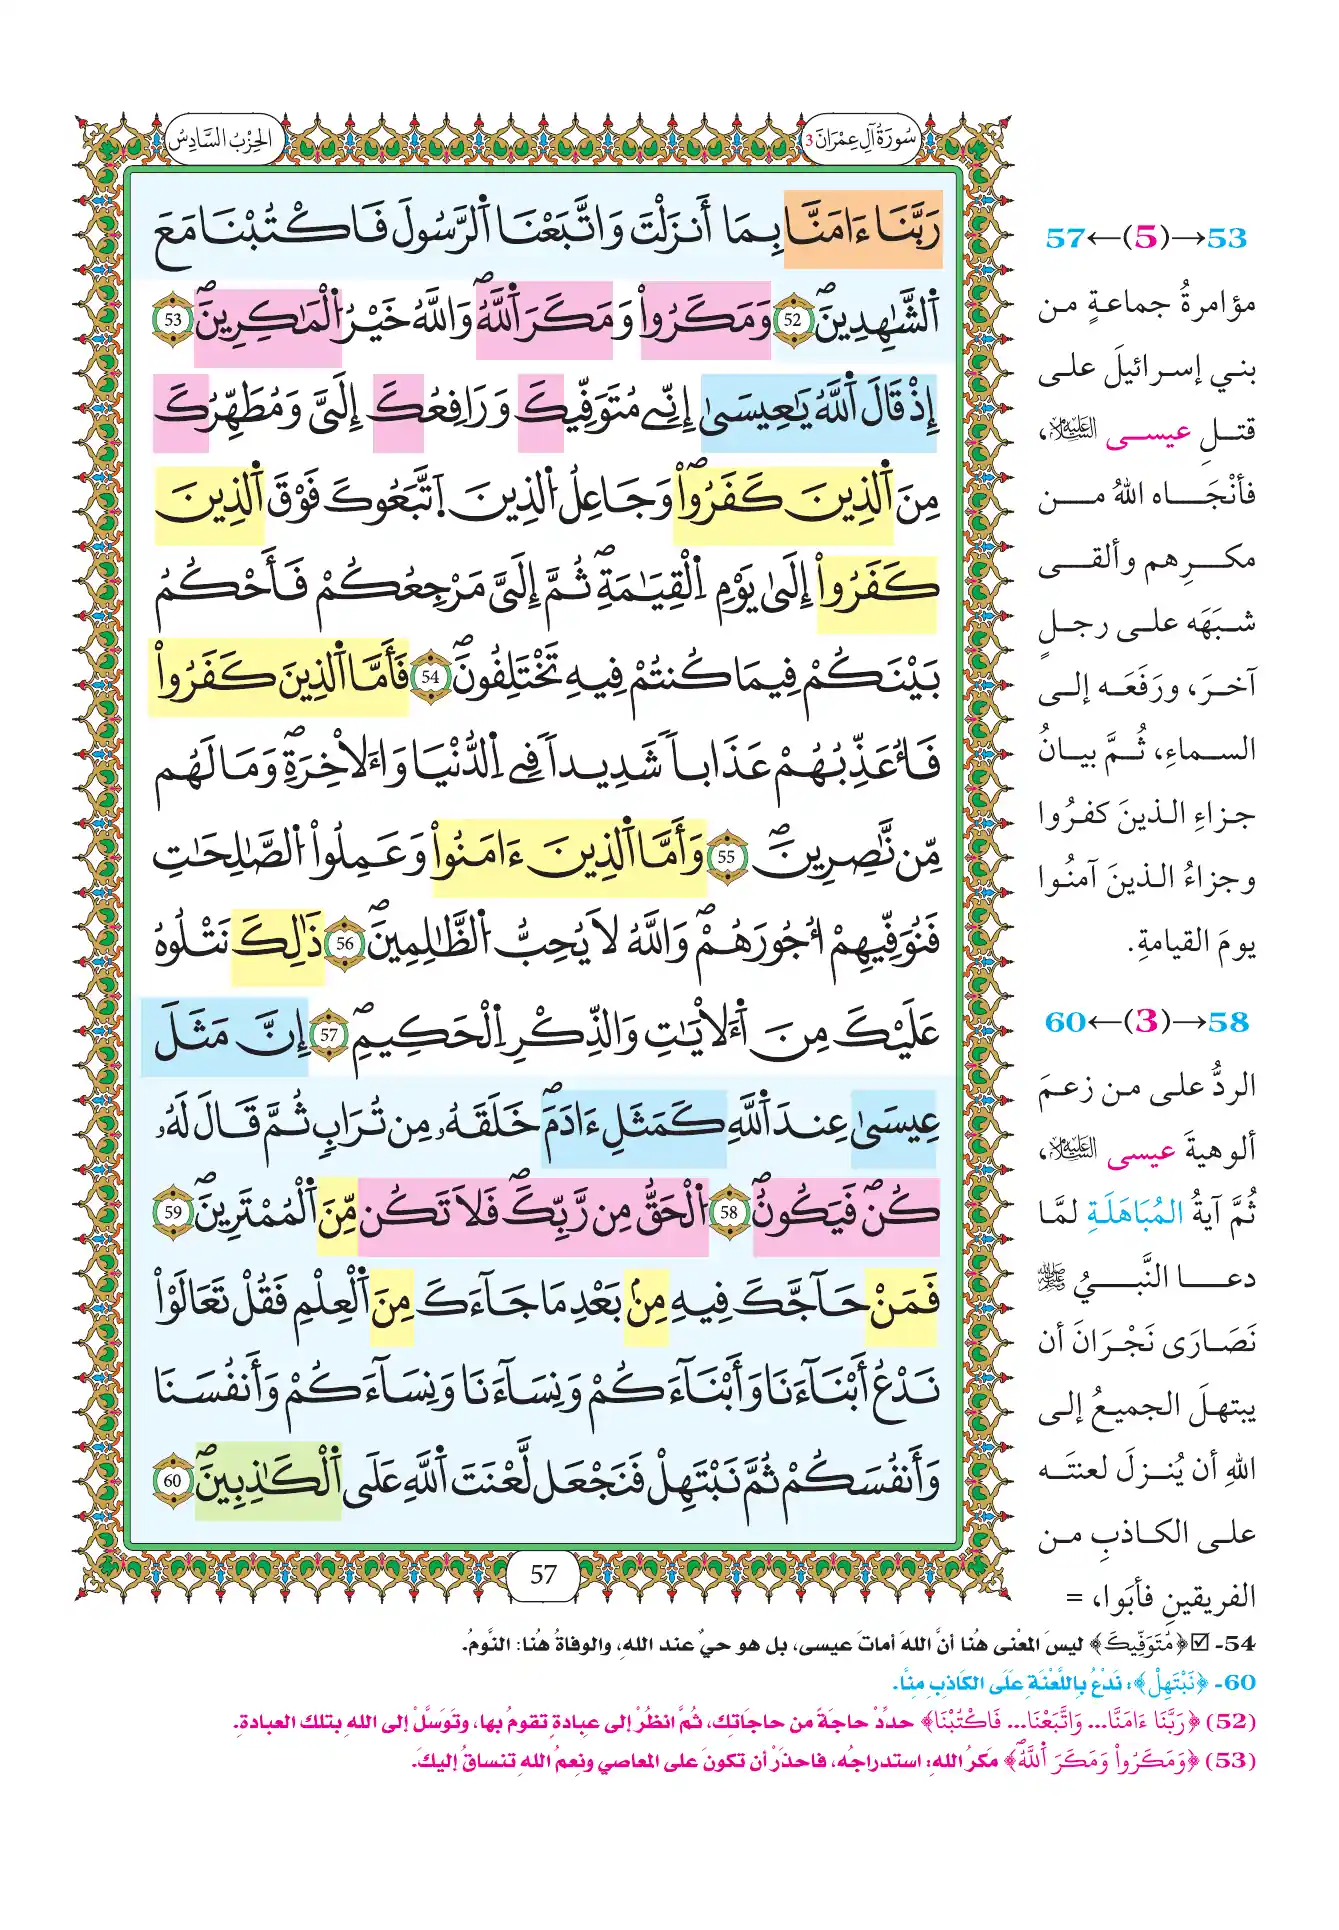 سُورَةُ آلِ عِمْرَانَ 3
الحِزْبُ السَّادِسُ
رَبَّنَا ءَامَنَّا بِمَا أَنزَلْتَ وَاتَّبَعْنَا اَلرَّسُولَ فَاكْتُبْنَا مَعَ
اَلشَّٰهِدِينَۖ 52 وَمَكَرُواْ وَمَكَرَ اَللَّهُۖ وَاللَّهُ خَيْرُ اُلْمَٰكِرِينَۖ 53
إِذْ قَالَ اَللَّهُ يَٰعِيسَىٰ إِنِّے مُتَوَفِّيكَ وَرَافِعُكَ إِلَىَّ وَمُطَهِّرُكَ
مِنَ اَلذِينَ كَفَرُواْۖ وَجَاعِلُ اُلذِينَ اَتَّبَعُوكَ فَوْقَ اَلذِينَ
كَفَرُواْ إِلَىٰ يَوْمِ اِلْقِيَٰمَةِۖ ثُمَّ إِلَىَّ مَرْجِعُكُمْ فَأَحْكُمُ
بَيْنَكُمْ فِيمَا كُنتُمْ فِيهِ تَخْتَلِفُونَۖ 54 فَأَمَّا اَلذِينَ كَفَرُواْ
فَأُعَذِّبُهُمْ عَذَاباٗ شَدِيداٗ فِے اِلدُّنْيَا وَالَاخِرَةِۖ وَمَا لَهُم
مِّن نَّٰصِرِينَۖ 55 وَأَمَّا اَلذِينَ ءَامَنُواْ وَعَمِلُواْ اُلصَّٰلِحَٰتِ
فَنُوَفِّيهِمْ أُجُورَهُمْۖ وَاللَّهُ لَا يُحِبُّ اُلظَّٰلِمِينَۖ 56 ذَٰلِكَ نَتْلُوهُ
عَلَيْكَ مِنَ اَلَايَٰتِ وَالذِّكْرِ اِلْحَكِيمِۖ 57 إِنَّ مَثَلَ
عِيسَىٰ عِندَ اَللَّهِ كَمَثَلِ ءَادَمَۖ خَلَقَهُۥ مِن تُرَابٖ ثُمَّ قَالَ لَهُۥ
كُنۖ فَيَكُونُۖ 58 اُلْحَقُّ مِن رَّبِّكَۖ فَلَا تَكُن مِّنَ اَلْمُمْتَرِينَۖ 59
فَمَنْ حَآجَّكَ فِيهِ مِنۢ بَعْدِ مَا جَآءَكَ مِنَ اَلْعِلْمِ فَقُلْ تَعَالَوْاْ
نَدْعُ أَبْنَآءَنَا وَأَبْنَآءَكُمْ وَنِسَآءَنَا وَنِسَآءَكُمْ وَأَنفُسَنَا
وَأَنفُسَكُمْ ثُمَّ نَبْتَهِلْ فَنَجْعَل لَّعْنَتَ اَللَّهِ عَلَى اَلْكَٰذِبِينَۖ 60
57
53→(5)←57
مؤامرةُ جماعةٍ من
بني إسرائيلَ على
قتلِ عيسى عليه السلام،
فأنْجَاه اللهُ من
مكرِهم وألقى
شبَهَه على رجلٍ
آخرَ، ورَفَعَه إلى
السماءِ، ثُمَّ بيانُ
جزاءِ الذينَ كفرُوا
وجزاءُ الذينَ آمنُوا
يومَ القيامةِ.
58→(3)←60
الردُّ على من زعمَ
ألوهيةَ عيسى عليه السلام،
ثُمَّ آيةُ المُبَاهَلَةِ لمَّا
دعا النَّبيُّ ﷺ
نَصَارَى نَجْرَانَ أن
يبتهلَ الجميعُ إلى
اللهِ أن يُنزلَ لعنتَه
على الكاذبِ من
الفريقينِ فأبَوا، =
54- ☑ ﴿مُتَوَفِّيكَ﴾ ليسَ المعْنى هُنا أنَّ اللهَ أماتَ عيسى، بل هو حيٌ عند اللهِ، والوفاةُ هُنا: النَّومُ.
60- ﴿نَبْتَهِلْ﴾: نَدْعُ بِاللَّعْنَةِ عَلَى الكَاذِبِ مِنَّا.
(52) ﴿رَبَّنَا ءَامَنَّا... وَاتَّبَعْنَا... فَاكْتُبْنَا﴾ حدِّدْ حاجَةً من حاجَاتِك، ثُمَّ انظُرْ إلى عبادةٍ تقومُ بها، وتوَسَّلْ إلى اللهِ بتلك العبادةِ.
(53) ﴿وَمَكَرُواْ وَمَكَرَ اَللَّهُۖ﴾ مَكرُ اللهِ: استدراجُه، فاحذَرْ أن تكونَ على المعاصي ونِعمُ اللهِ تنساقُ إليكَ.